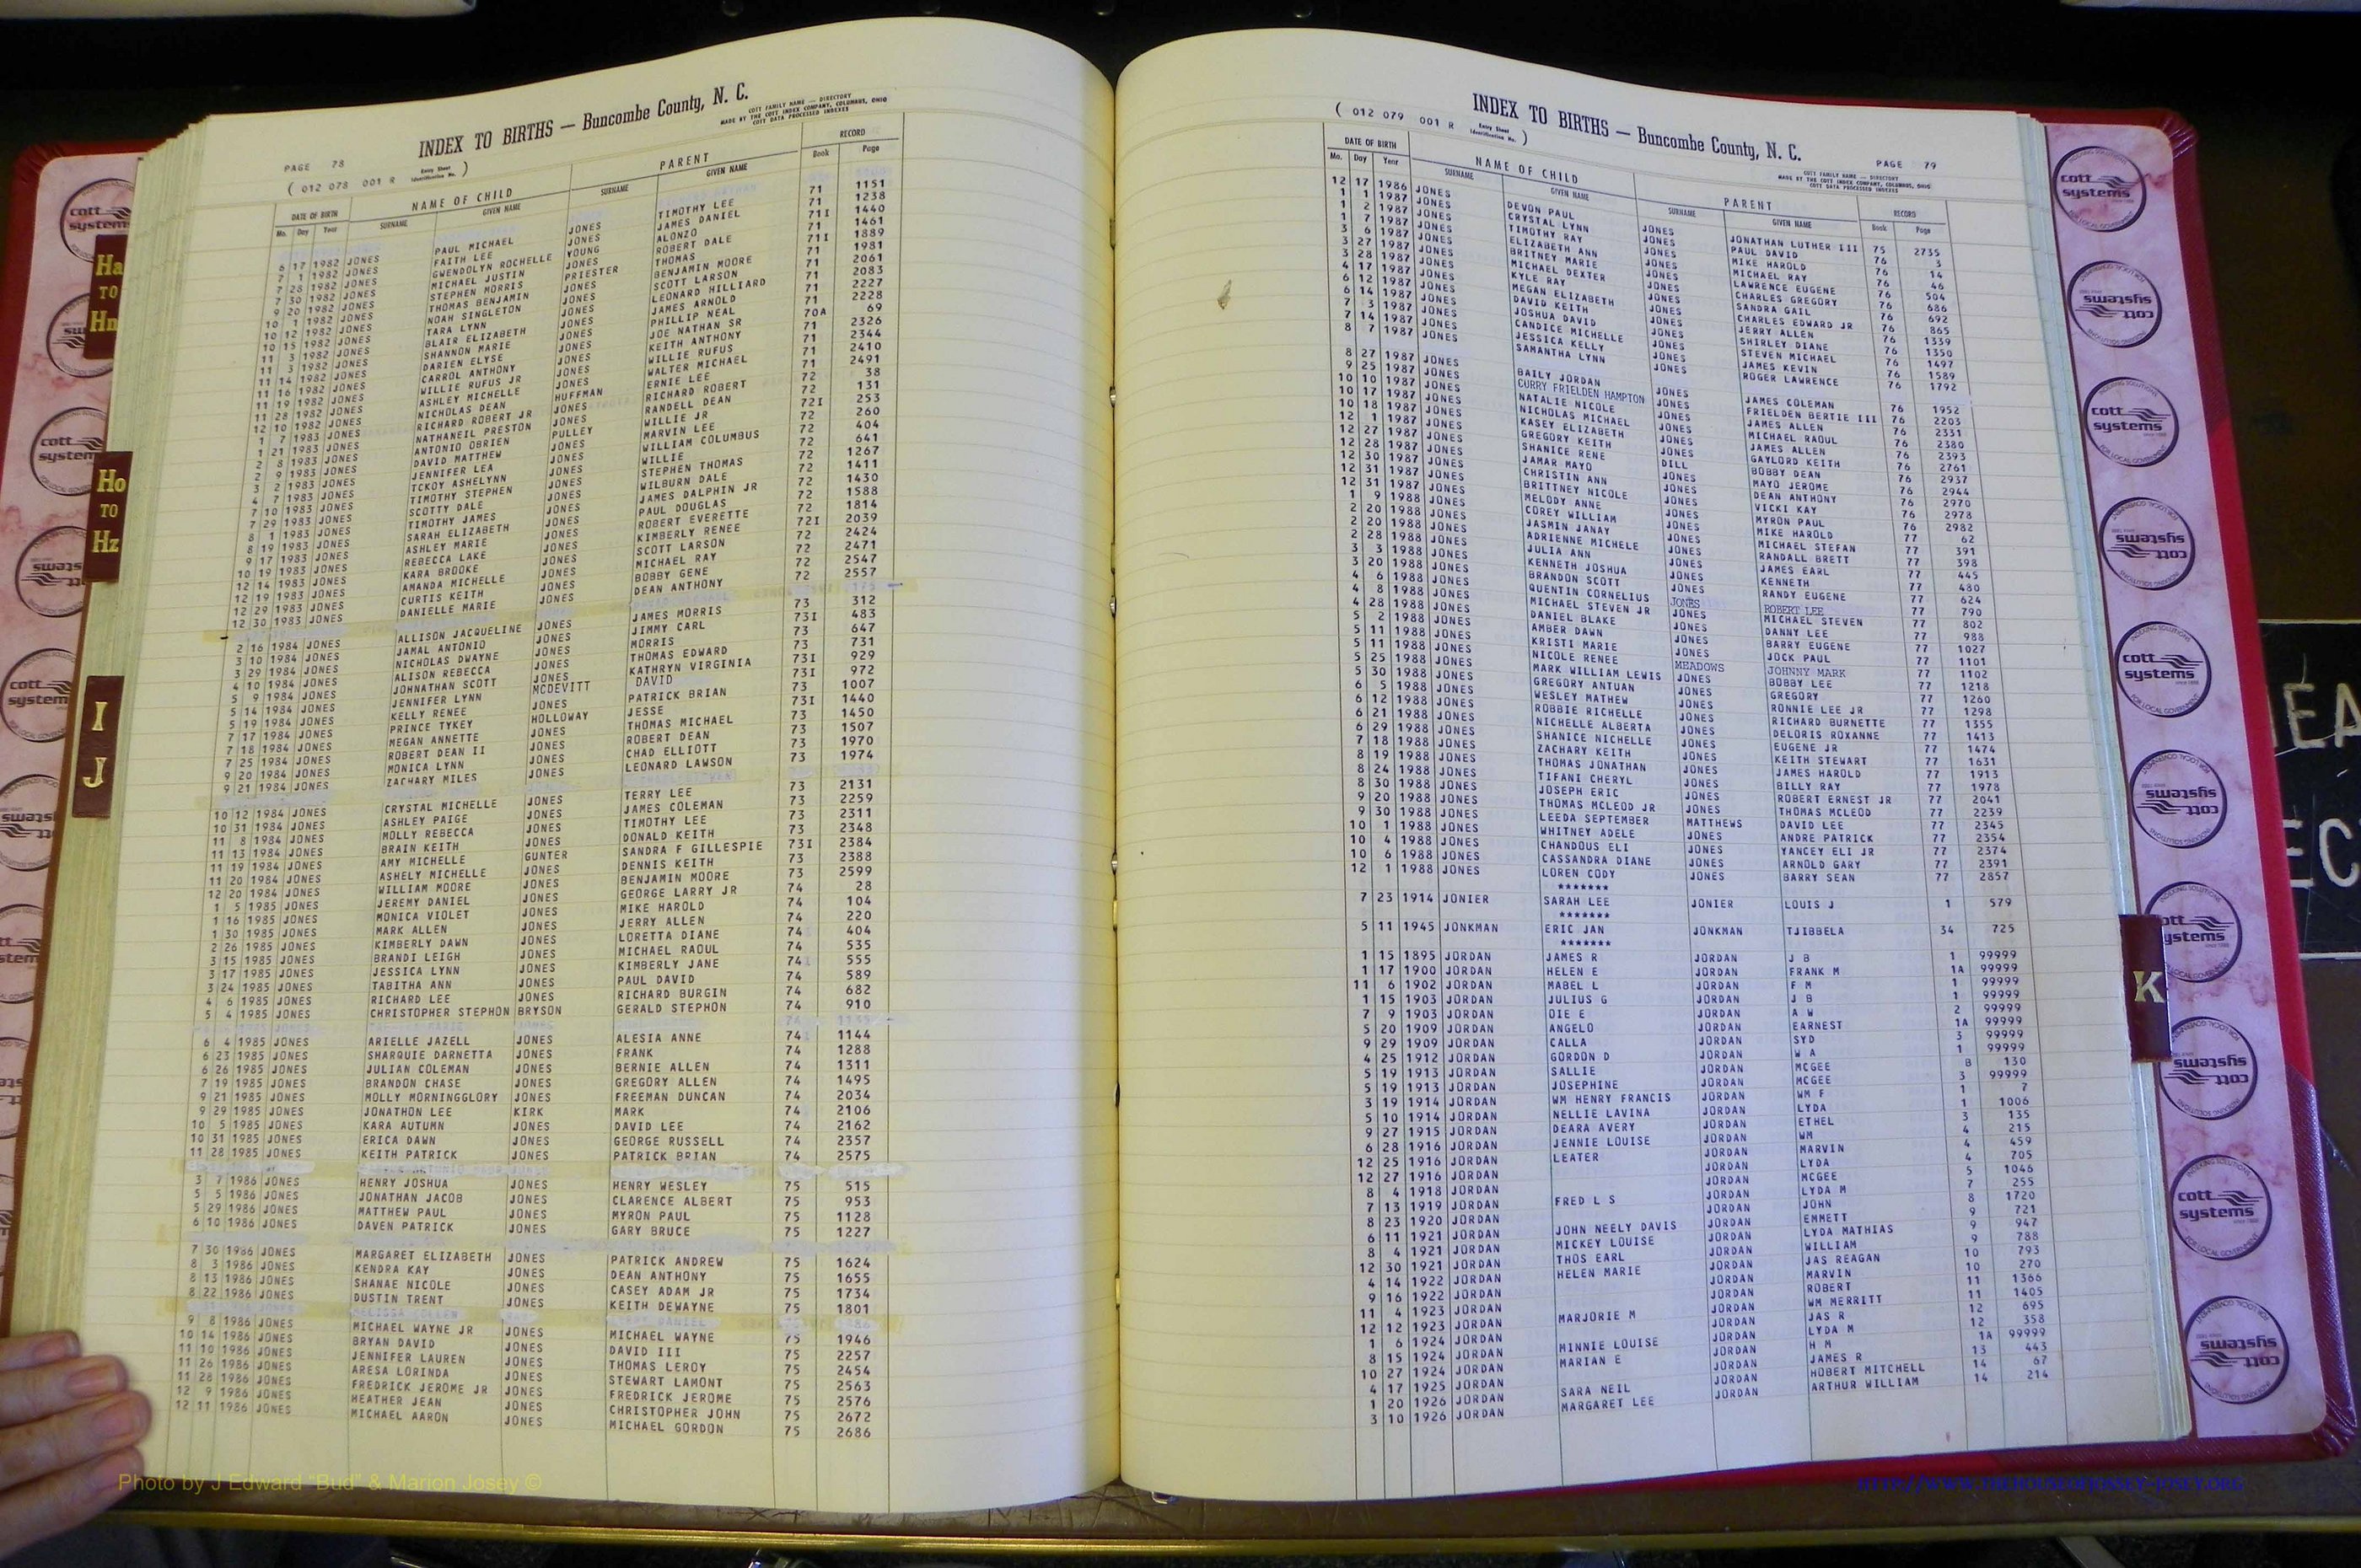 INDEX TO BIRTHS — Buncombe County, N. C.
COTT FAMILY NAME — DIRECTORY
MADE BY THE COTT INDEX COMPANY, COLUMBUS, OHIO
COTT DATA PROCESSED INDEXES
PAGE 78
( 012 078 001 R Entry Sheet Identification No. )
DATE OF BIRTH NAME OF CHILD PARENT RECORD
Mo. Day Year SURNAME GIVEN NAME SURNAME GIVEN NAME Book Page
6 17 1982 JONES PAUL MICHAEL JONES TIMOTHY LEE 71 1151
7 1 1982 JONES FAITH LEE JONES JAMES DANIEL 71 1238
7 28 1982 JONES GWENDOLYN ROCHELLE YOUNG ALONZO 71I 1440
7 30 1982 JONES MICHAEL JUSTIN JONES ROBERT DALE 71 1461
9 20 1982 JONES STEPHEN MORRIS PRIESTER THOMAS 71I 1889
10 1 1982 JONES THOMAS BENJAMIN JONES BENJAMIN MOORE 71 1981
10 12 1982 JONES NOAH SINGLETON JONES SCOTT LARSON 71 2061
10 15 1982 JONES TARA LYNN JONES LEONARD HILLIARD 71 2083
11 3 1982 JONES BLAIR ELIZABETH JONES JAMES ARNOLD 71 2227
11 3 1982 JONES SHANNON MARIE JONES PHILLIP NEAL 71 2228
11 14 1982 JONES DARIEN ELYSE JONES JOE NATHAN SR 70A 69
11 16 1982 JONES CARROL ANTHONY JONES KEITH ANTHONY 71 2326
11 19 1982 JONES WILLIE RUFUS JR JONES WILLIE RUFUS 71 2344
11 28 1982 JONES ASHLEY MICHELLE JONES WALTER MICHAEL 71 2410
12 10 1982 JONES NICHOLAS DEAN HUFFMAN ERNIE LEE 71 2491
1 7 1983 JONES RICHARD ROBERT JR JONES RICHARD ROBERT 72 38
1 21 1983 JONES NATHANEIL PRESTON JONES RANDELL DEAN 72 131
2 8 1983 JONES ANTONIO OBRIEN PULLEY WILLIE JR 72I 253
2 9 1983 JONES DAVID MATTHEW JONES MARVIN LEE 72 260
3 2 1983 JONES JENNIFER LEA JONES WILLIAM COLUMBUS 72 404
4 7 1983 JONES TCKOY ASHELYNN JONES WILLIE 72 641
7 10 1983 JONES TIMOTHY STEPHEN JONES STEPHEN THOMAS 72 1267
7 29 1983 JONES SCOTTY DALE JONES WILBURN DALE 72 1411
8 1 1983 JONES TIMOTHY JAMES JONES JAMES DALPHIN JR 72 1430
8 19 1983 JONES SARAH ELIZABETH JONES PAUL DOUGLAS 72 1588
9 17 1983 JONES ASHLEY MARIE JONES ROBERT EVERETTE 72 1814
10 19 1983 JONES REBECCA LAKE JONES KIMBERLY RENEE 72I 2039
12 14 1983 JONES KARA BROOKE JONES SCOTT LARSON 72 2424
12 19 1983 JONES AMANDA MICHELLE JONES MICHAEL RAY 72 2471
12 29 1983 JONES CURTIS KEITH JONES BOBBY GENE 72 2547
12 30 1983 JONES DANIELLE MARIE JONES DEAN ANTHONY 72 2557
2 16 1984 JONES ALLISON JACQUELINE JONES JAMES MORRIS 73 312
3 10 1984 JONES JAMAL ANTONIO JONES JIMMY CARL 73I 483
3 29 1984 JONES NICHOLAS DWAYNE JONES MORRIS 73 647
4 10 1984 JONES ALISON REBECCA JONES THOMAS EDWARD 73 731
5 9 1984 JONES JOHNATHAN SCOTT JONES KATHRYN VIRGINIA 73I 929
5 14 1984 JONES JENNIFER LYNN MCDEVITT DAVID 73I 972
5 19 1984 JONES KELLY RENEE JONES PATRICK BRIAN 73 1007
7 17 1984 JONES PRINCE TYKEY HOLLOWAY JESSE 73I 1440
7 18 1984 JONES MEGAN ANNETTE JONES THOMAS MICHAEL 73 1450
7 25 1984 JONES ROBERT DEAN II JONES ROBERT DEAN 73 1507
9 20 1984 JONES MONICA LYNN JONES CHAD ELLIOTT 73 1970
9 21 1984 JONES ZACHARY MILES JONES LEONARD LAWSON 73 1974
10 12 1984 JONES CRYSTAL MICHELLE JONES TERRY LEE 73 2131
10 31 1984 JONES ASHLEY PAIGE JONES JAMES COLEMAN 73 2259
11 8 1984 JONES MOLLY REBECCA JONES TIMOTHY LEE 73 2311
11 13 1984 JONES BRAIN KEITH JONES DONALD KEITH 73 2348
11 19 1984 JONES AMY MICHELLE GUNTER SANDRA F GILLESPIE 73I 2384
11 20 1984 JONES ASHELY MICHELLE JONES DENNIS KEITH 73 2388
12 20 1984 JONES WILLIAM MOORE JONES BENJAMIN MOORE 73 2599
1 5 1985 JONES JEREMY DANIEL JONES GEORGE LARRY JR 74 28
1 16 1985 JONES MONICA VIOLET JONES MIKE HAROLD 74 104
1 30 1985 JONES MARK ALLEN JONES JERRY ALLEN 74 220
2 26 1985 JONES KIMBERLY DAWN JONES LORETTA DIANE 74 404
3 15 1985 JONES BRANDI LEIGH JONES MICHAEL RAOUL 74 535
3 17 1985 JONES JESSICA LYNN JONES KIMBERLY JANE 74 555
3 24 1985 JONES TABITHA ANN JONES PAUL DAVID 74 589
4 6 1985 JONES RICHARD LEE JONES RICHARD BURGIN 74 682
5 4 1985 JONES CHRISTOPHER STEPHON BRYSON GERALD STEPHON 74 910
6 4 1985 JONES ARIELLE JAZELL JONES ALESIA ANNE 74 1144
6 23 1985 JONES SHARQUIE DARNETTA JONES FRANK 74 1288
6 26 1985 JONES JULIAN COLEMAN JONES BERNIE ALLEN 74 1311
7 19 1985 JONES BRANDON CHASE JONES GREGORY ALLEN 74 1495
9 21 1985 JONES MOLLY MORNINGGLORY JONES FREEMAN DUNCAN 74 2034
9 29 1985 JONES JONATHON LEE KIRK MARK 74 2106
10 5 1985 JONES KARA AUTUMN JONES DAVID LEE 74 2162
10 31 1985 JONES ERICA DAWN JONES GEORGE RUSSELL 74 2357
11 28 1985 JONES KEITH PATRICK JONES PATRICK BRIAN 74 2575
3 7 1986 JONES HENRY JOSHUA JONES HENRY WESLEY 75 515
5 5 1986 JONES JONATHAN JACOB JONES CLARENCE ALBERT 75 953
5 29 1986 JONES MATTHEW PAUL JONES MYRON PAUL 75 1128
6 10 1986 JONES DAVEN PATRICK JONES GARY BRUCE 75 1227
7 30 1986 JONES MARGARET ELIZABETH JONES PATRICK ANDREW 75 1624
8 3 1986 JONES KENDRA KAY JONES DEAN ANTHONY 75 1655
8 13 1986 JONES SHANAE NICOLE JONES CASEY ADAM JR 75 1734
8 22 1986 JONES DUSTIN TRENT JONES KEITH DEWAYNE 75 1801
9 8 1986 JONES MICHAEL WAYNE JR JONES MICHAEL WAYNE 75 1946
10 14 1986 JONES BRYAN DAVID JONES DAVID III 75 2257
11 10 1986 JONES JENNIFER LAUREN JONES THOMAS LEROY 75 2454
11 26 1986 JONES ARESA LORINDA JONES STEWART LAMONT 75 2563
11 28 1986 JONES FREDRICK JEROME JR JONES FREDRICK JEROME 75 2576
12 9 1986 JONES HEATHER JEAN JONES CHRISTOPHER JOHN 75 2672
12 11 1986 JONES MICHAEL AARON JONES MICHAEL GORDON 75 2686
INDEX TO BIRTHS — Buncombe County, N. C.
( 012 079 001 R Entry Sheet Identification No. )
PAGE 79
COTT FAMILY NAME — DIRECTORY
MADE BY THE COTT INDEX COMPANY, COLUMBUS, OHIO
COTT DATA PROCESSED INDEXES
DATE OF BIRTH NAME OF CHILD PARENT RECORD
Mo. Day Year SURNAME GIVEN NAME SURNAME GIVEN NAME Book Page
12 17 1986 JONES DEVON PAUL JONES JONATHAN LUTHER III 75 2735
1 1 1987 JONES CRYSTAL LYNN JONES PAUL DAVID 76 3
1 2 1987 JONES TIMOTHY RAY JONES MIKE HAROLD 76 14
1 7 1987 JONES ELIZABETH ANN JONES MICHAEL RAY 76 46
3 6 1987 JONES BRITNEY MARIE JONES LAWRENCE EUGENE 76 504
3 27 1987 JONES MICHAEL DEXTER JONES CHARLES GREGORY 76 686
3 28 1987 JONES KYLE RAY JONES SANDRA GAIL 76 692
4 17 1987 JONES MEGAN ELIZABETH JONES CHARLES EDWARD JR 76 865
6 12 1987 JONES DAVID KEITH JONES JERRY ALLEN 76 1339
6 14 1987 JONES JOSHUA DAVID JONES SHIRLEY DIANE 76 1350
7 3 1987 JONES CANDICE MICHELLE JONES STEVEN MICHAEL 76 1497
7 14 1987 JONES JESSICA KELLY JONES JAMES KEVIN 76 1589
8 7 1987 JONES SAMANTHA LYNN JONES ROGER LAWRENCE 76 1792
8 27 1987 JONES BAILY JORDAN JONES JAMES COLEMAN 76 1952
9 25 1987 JONES CURRY FRIELDEN HAMPTON JONES FRIELDEN BERTIE III 76 2203
10 10 1987 JONES NATALIE NICOLE JONES JAMES ALLEN 76 2331
10 17 1987 JONES NICHOLAS MICHAEL JONES MICHAEL RAOUL 76 2380
10 18 1987 JONES KASEY ELIZABETH JONES JAMES ALLEN 76 2393
12 1 1987 JONES GREGORY KEITH JONES GAYLORD KEITH 76 2761
12 27 1987 JONES SHANICE RENE JONES BOBBY DEAN 76 2937
12 28 1987 JONES JAMAR MAYO DILL MAYO JEROME 76 2944
12 30 1987 JONES CHRISTIN ANN JONES DEAN ANTHONY 76 2970
12 31 1987 JONES BRITTNEY NICOLE JONES VICKI KAY 76 2978
12 31 1987 JONES MELODY ANNE JONES MYRON PAUL 76 2982
1 9 1988 JONES COREY WILLIAM JONES MIKE HAROLD 77 62
2 20 1988 JONES JASMIN JANAY JONES MICHAEL STEFAN 77 391
2 20 1988 JONES ADRIENNE MICHELE JONES RANDALL BRETT 77 398
2 28 1988 JONES JULIA ANN JONES JAMES EARL 77 445
3 3 1988 JONES KENNETH JOSHUA JONES KENNETH 77 480
3 20 1988 JONES BRANDON SCOTT JONES RANDY EUGENE 77 624
4 6 1988 JONES QUENTIN CORNELIUS JONES ROBERT LEE 77 790
4 8 1988 JONES MICHAEL STEVEN JR JONES MICHAEL STEVEN 77 802
4 28 1988 JONES DANIEL BLAKE JONES DANNY LEE 77 988
5 2 1988 JONES AMBER DAWN JONES BARRY EUGENE 77 1027
5 11 1988 JONES KRISTI MARIE JONES JOCK PAUL 77 1101
5 11 1988 JONES NICOLE RENEE MEADOWS JOHNNY MARK 77 1102
5 25 1988 JONES MARK WILLIAM LEWIS JONES BOBBY LEE 77 1218
5 30 1988 JONES GREGORY ANTUAN JONES GREGORY 77 1260
6 5 1988 JONES WESLEY MATHEW JONES RONNIE LEE JR 77 1298
6 12 1988 JONES ROBBIE RICHELLE JONES RICHARD BURNETTE 77 1355
6 21 1988 JONES NICHELLE ALBERTA JONES DELORIS ROXANNE 77 1413
6 29 1988 JONES SHANICE NICHELLE JONES EUGENE JR 77 1474
7 18 1988 JONES ZACHARY KEITH JONES KEITH STEWART 77 1631
8 19 1988 JONES THOMAS JONATHAN JONES JAMES HAROLD 77 1913
8 24 1988 JONES TIFANI CHERYL JONES BILLY RAY 77 1978
8 30 1988 JONES JOSEPH ERIC JONES ROBERT ERNEST JR 77 2041
9 20 1988 JONES THOMAS MCLEOD JR JONES THOMAS MCLEOD 77 2239
9 30 1988 JONES LEEDA SEPTEMBER MATTHEWS DAVID LEE 77 2345
10 1 1988 JONES WHITNEY ADELE JONES ANDRE PATRICK 77 2354
10 4 1988 JONES CHANDOUS ELI JONES YANCEY ELI JR 77 2374
10 6 1988 JONES CASSANDRA DIANE JONES ARNOLD GARY 77 2391
12 1 1988 JONES LOREN CODY JONES BARRY SEAN 77 2857
*******
7 23 1914 JONIER SARAH LEE JONIER LOUIS J 1 579
*******
5 11 1945 JONKMAN ERIC JAN JONKMAN TJIBBELA 34 725
*******
1 15 1895 JORDAN JAMES R JORDAN J B 1 99999
1 17 1900 JORDAN HELEN E JORDAN FRANK M 1A 99999
11 6 1902 JORDAN MABEL L JORDAN F M 1 99999
1 15 1903 JORDAN JULIUS G JORDAN J B 1 99999
7 9 1903 JORDAN OIE E JORDAN A W 2 99999
5 20 1909 JORDAN ANGELO JORDAN EARNEST 1A 99999
9 29 1909 JORDAN CALLA JORDAN SYD 3 99999
4 25 1912 JORDAN GORDON D JORDAN W A 1 99999
5 19 1913 JORDAN SALLIE JORDAN MCGEE B 130
5 19 1913 JORDAN JOSEPHINE JORDAN MCGEE 3 99999
3 19 1914 JORDAN WM HENRY FRANCIS JORDAN WM F 1 7
5 10 1914 JORDAN NELLIE LAVINA JORDAN LYDA 1 1006
9 27 1915 JORDAN DEARA AVERY JORDAN ETHEL 3 135
6 28 1916 JORDAN JENNIE LOUISE JORDAN WM 4 215
12 25 1916 JORDAN LEATER JORDAN MARVIN 4 459
12 27 1916 JORDAN JORDAN LYDA 4 705
8 4 1918 JORDAN JORDAN MCGEE 5 1046
7 13 1919 JORDAN FRED L S JORDAN LYDA M 7 255
8 23 1920 JORDAN JORDAN JOHN 8 1720
6 11 1921 JORDAN JOHN NEELY DAVIS JORDAN EMMETT 9 721
8 4 1921 JORDAN MICKEY LOUISE JORDAN LYDA MATHIAS 9 947
12 30 1921 JORDAN THOS EARL JORDAN WILLIAM 9 788
4 14 1922 JORDAN HELEN MARIE JORDAN JAS REAGAN 10 793
9 16 1922 JORDAN JORDAN MARVIN 10 270
11 4 1923 JORDAN JORDAN ROBERT 11 1366
12 12 1923 JORDAN MARJORIE M JORDAN WM MERRITT 11 1405
1 6 1924 JORDAN JORDAN JAS R 12 695
8 15 1924 JORDAN MINNIE LOUISE JORDAN LYDA M 12 358
10 27 1924 JORDAN MARIAN E JORDAN H M 1A 99999
4 17 1925 JORDAN JORDAN JAMES R 13 443
1 20 1926 JORDAN SARA NEIL JORDAN HOBERT MITCHELL 14 67
3 10 1926 JORDAN MARGARET LEE JORDAN ARTHUR WILLIAM 14 214
Ha TO Hn
Ho TO Hz
I
J
K
cott systems
Photo by J Edward "Bud" & Marion Josey ©
HTTP://WWW.THEHOUSEOFJOSSEY-JOSEY.ORG